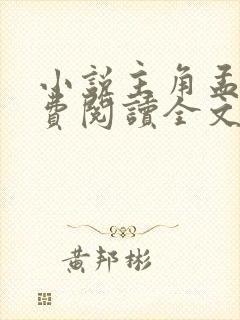 小說主角孟
費閱讀全文
黃邦彬